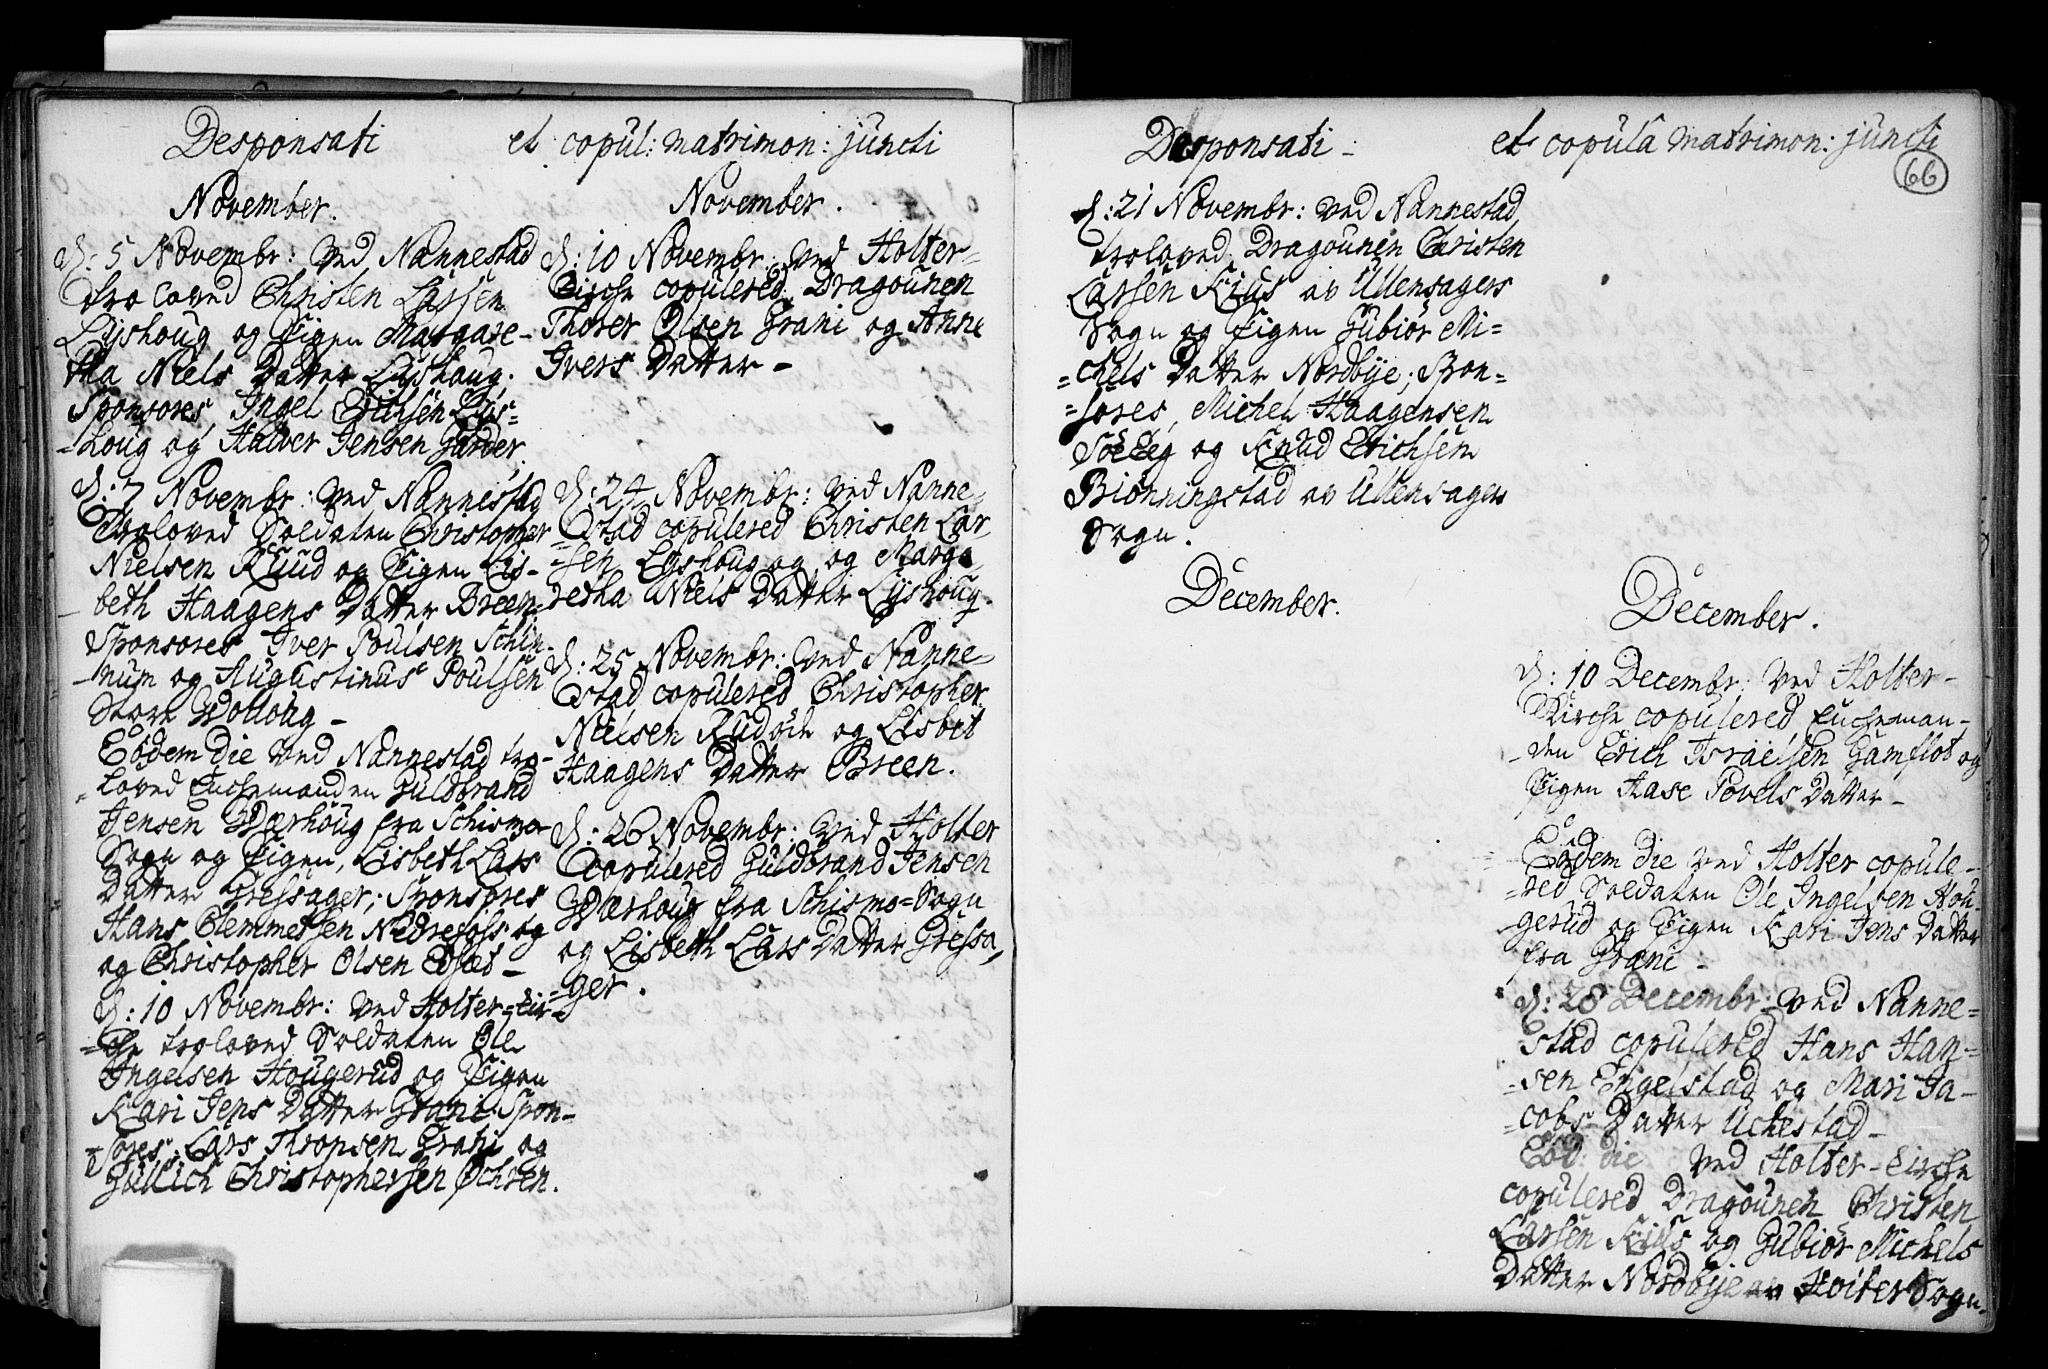 Desponsati
November.
d: 5 Novembr: ved Nannestad
troloved Christen Larsen
Lÿshoug og Pigen Margare-
tha Niels Datter Lÿshoug;
Sponsores, Ingel Erichsen Lÿs-
-houg og Halver Jensen Garder.
d: 7 Novembr: ved Nannestad
troloved Soldaten Christopher
Nielsen Ruud og Pigen Lis-
beth Haagens Datter Breen;
Sponsores Iver Poulsen Schin-
-num og Augustinus Poulsen
Store Wolloug -
Eodem die ved Nannestad tro-
-loved Enchemanden Guldbrand
Jensen Wærhoug fra Schismo
Sogn og Pigen, Lisbeth Lars
Datter Gressager; Sponsores
Hans Clemmetsen Nedrefoss og
og Christopher Olsen
d: 10 Novembr: ved Holter-Kir-
-che troloved Soldaten Ole
Ingelsen Hougerud og Pigen
Kari Jens Datter Grani Spon-
sores: Lars Thronsen Grani og
Gullich Christophersen Ochsen.
et copul: matrimon: juncti
November.
d: 10 Novembr: ved Holter-
Kirche copulered Dragounen
Thorer Olsen Grani og Anne
Ivers Datter -
d: 24 Novembr: ved Nanne-
stad copulered Christen Lar-
-sen Lÿshoug og og Marga
retha Niels Datter Lÿshoug.
d: 25 Novembr: ved Nanne-
stad copulered Christopher
Nielsen og Lisbet
Haagens Datter Breen.
d: 26 Novembr: ved Holter
copulered Guldbrand Jensen
Wærhoug fra Schismo=Sogn
og Lisbeth Lars Datter Gressa,
-ger.
Desponsati -
d: 21 Novembr: ved Nannestad
troloved Dragounen Christen
Larsen Kius av Ullensagers
Sogn og Pigen Gubiør Mi=
=chels Datter Nordbÿe; Spon=
=sores, Michel Haagensen
og Knud Erichsen
Biønningstad av Ullensagers
Sogn.
December.
et copula matrimon: juncti
66
December.
d: 10 Decembr: ved Holter-
Kirche copulered Encheman-
-den Erich Israelsen Gamflot og
Pigen Aase Povels Datter -
Eodem die ved Holter copule-
-red Soldaten Ole Ingelsen Hou-
-gerud og Pigen Kari Jens Datter
fra Grani -
d: 28 Decembr: ved Nanne=
stad copulered Hans Han=
-sen Engelstad og Mari Ja-
-cobs Datter Uchestad -
Eod: die ved Holter-Kirche
copulered Dragounen Christen
Larsen Kius og Gubiør Michels
Datter Nordbÿe av Holter Sogn.